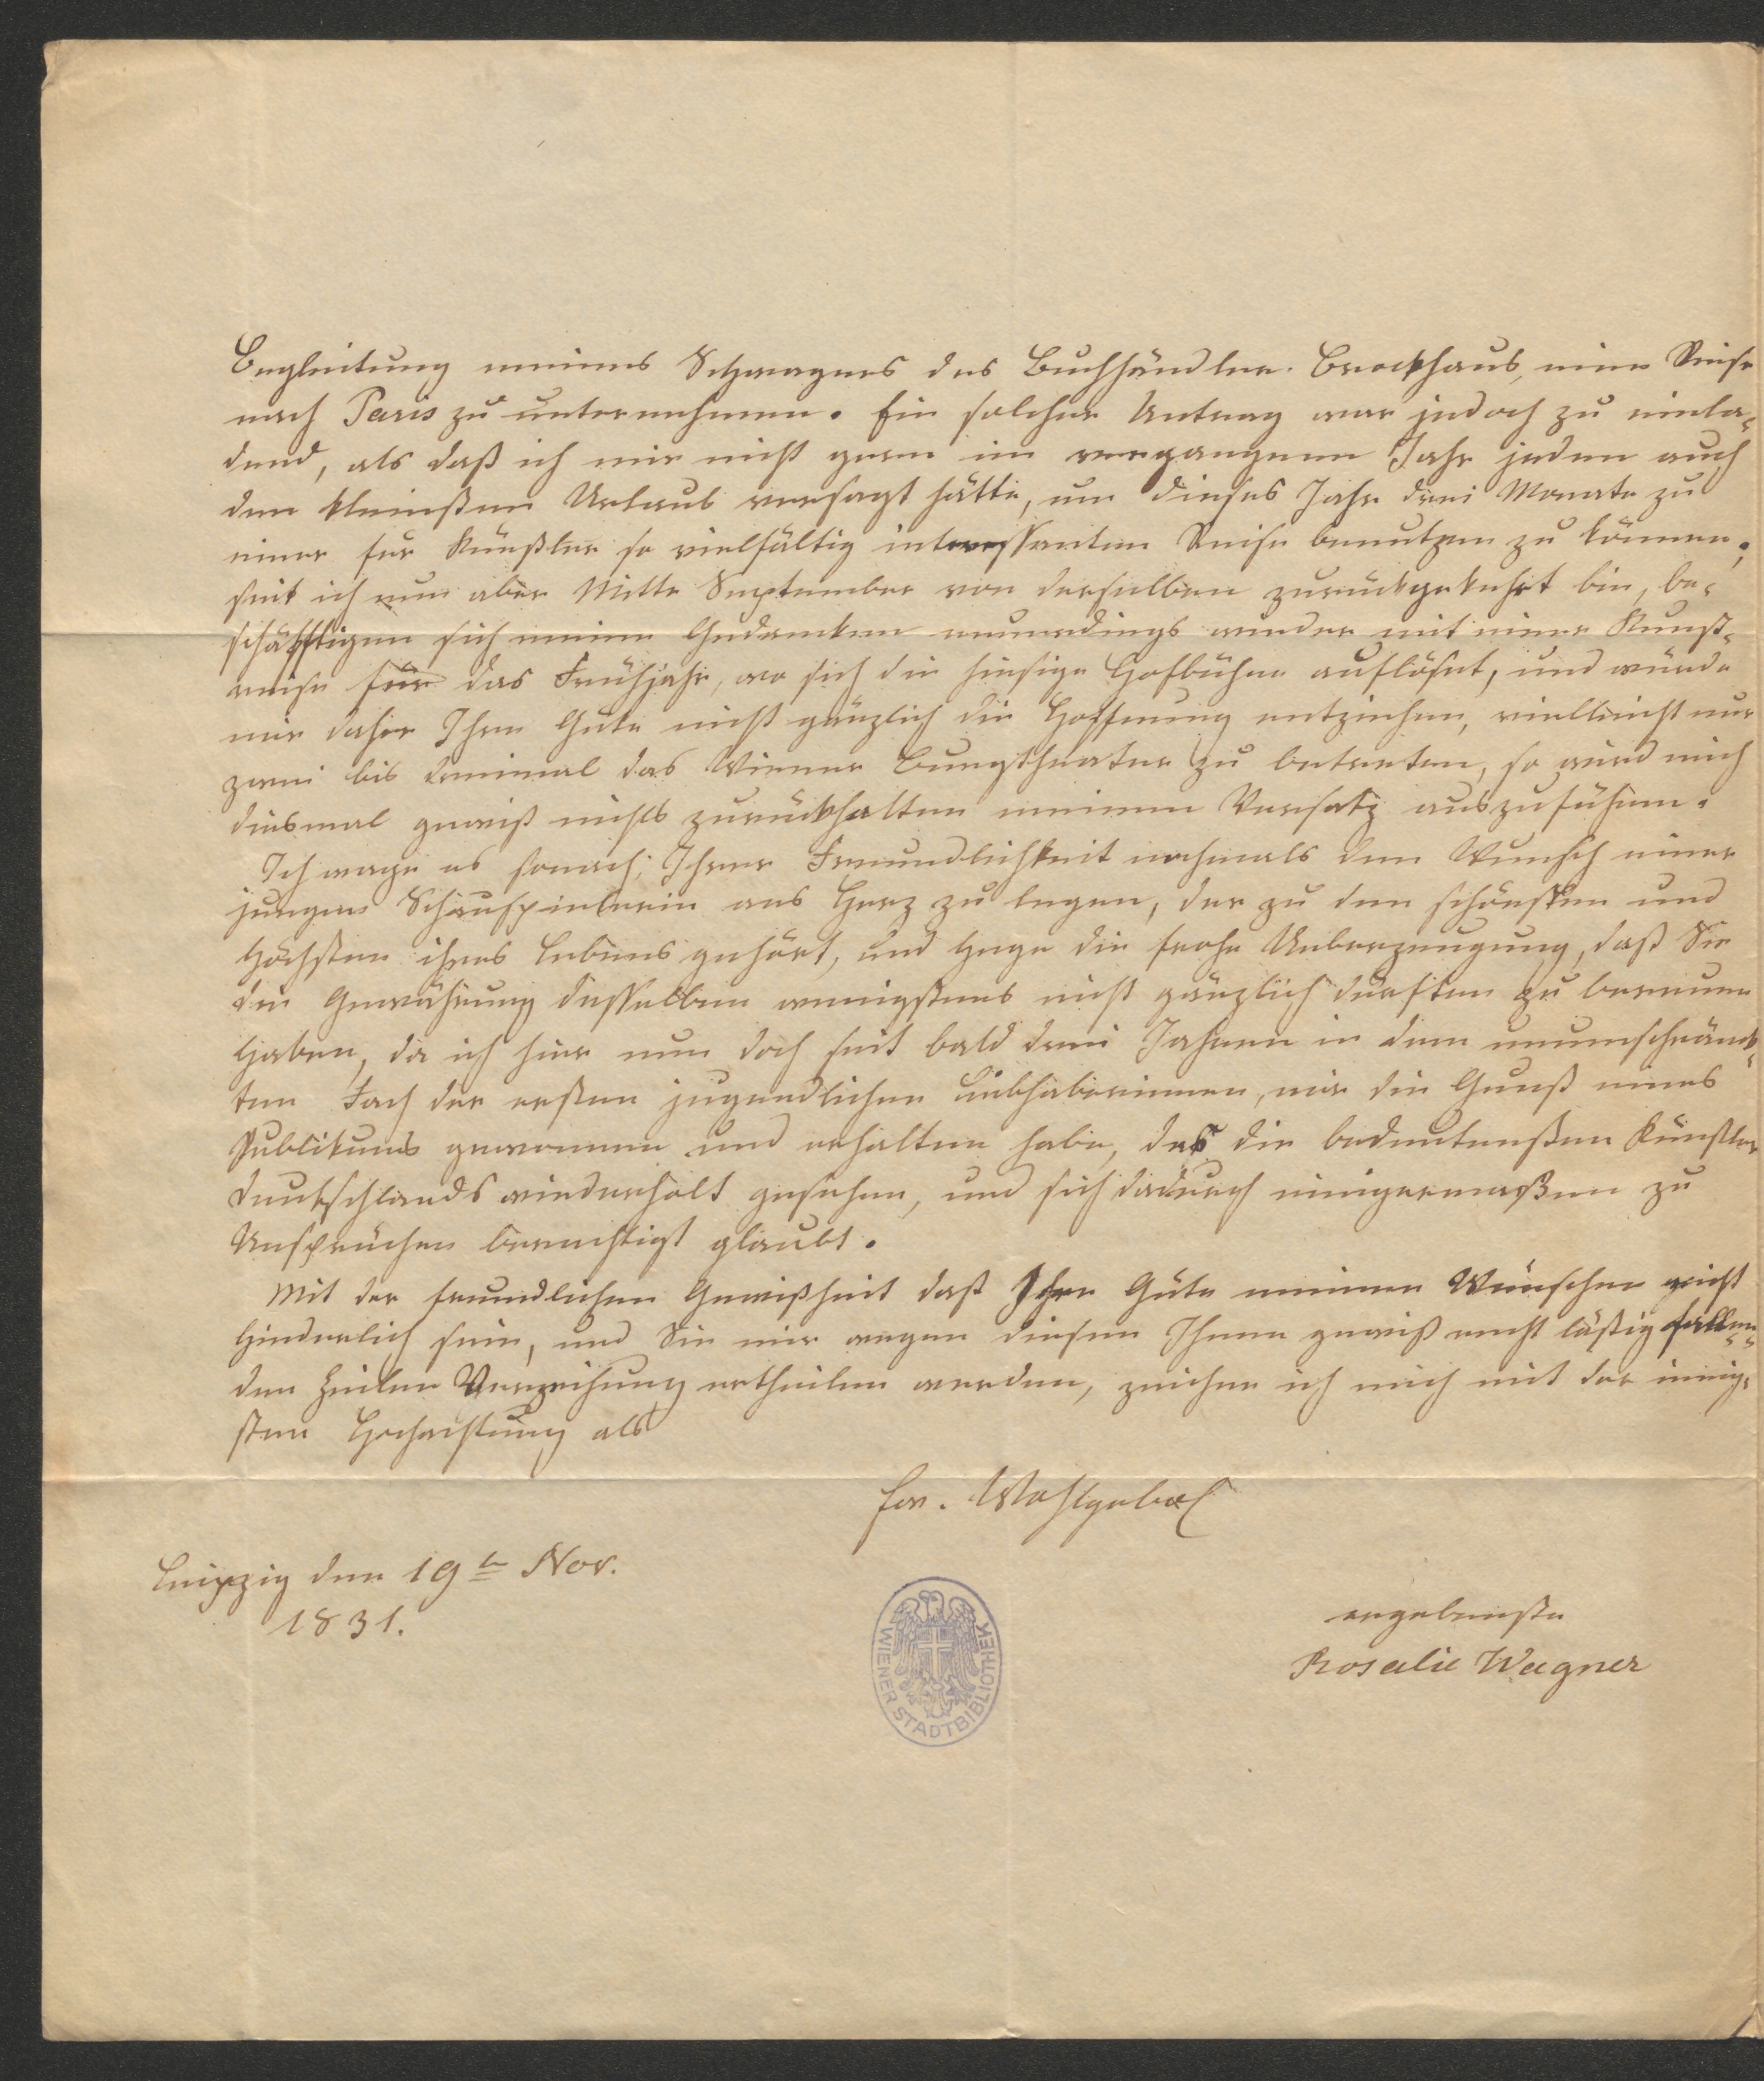 Begleitung meines Schwagers des Buchhändler Brockhaus, eine Reise
nach Paris zu unternehmen. Ein solcher Antrag war jedoch zu einla-
dend, als daß ich mir nicht gern im vergangenen Jahr jeden auch
den kleinsten Urlaub versagt hätte, um dieses Jahr drei Monate zu
einer für Künstler so vielfältig interessanten Reise benutzen zu können;
seit ich nun aber Mitte September von derselben zurückgekehrt bin, be-
schäfftigen sich meine Gedancken neuerdings wieder mit einer Kunst-
reise für das Frühjahr, wo sich die hiesige Hofbühne auflöset, und würde
mir daher Ihre Güte nicht gänzlich die Hoffnung entziehen, vielleicht nur
zwei bis dreimal das Wiener Burgtheater zu betreten, so wird mich
diesmal gewiß nichts zurückhalten meinen Vorsatz auszuführen.
Ich wage es sonach, Ihrer Freundlichkeit nochmals den Wunsch einer
jungen Schauspielerin ans Herz zu legen, der zu den schönsten und
höchsten ihres Lebens gehört, und hege die frohe Ueberzeugung, daß Sie
die Gewährung desselben wenigstens nicht gänzlich dürften zu bereuen
haben, da ich hier nun doch seit bald drei Jahren in dem unumschränk-
ten Fach der ersten jugendlichen Liebhaberinnen, mir die Gunst eines
Publikums gewonnen und erhalten habe, das die bedeutensten Künstler
Deutschlands wiederholt gesehen, und sich dadurch einigermaßen zu
Ansprüchen berechtigt glaubt.
Mit der freundlichen Gewißheit daß Ihre Güte meinen Wünschen nicht
hinderlich sein, und Sie mir wegen diesen Ihnen gewiß recht läßtig fallen-
den Zeilen Verzeihung ertheilen werden, zeichne ich mich mit der innig-
sten Hochachtung als
Ew. Wohlgebor
Leipzig den 19te Nov.
1831.
ergebenste
Rosalie Wagner
WIENER STADTBIBLIOTHEK